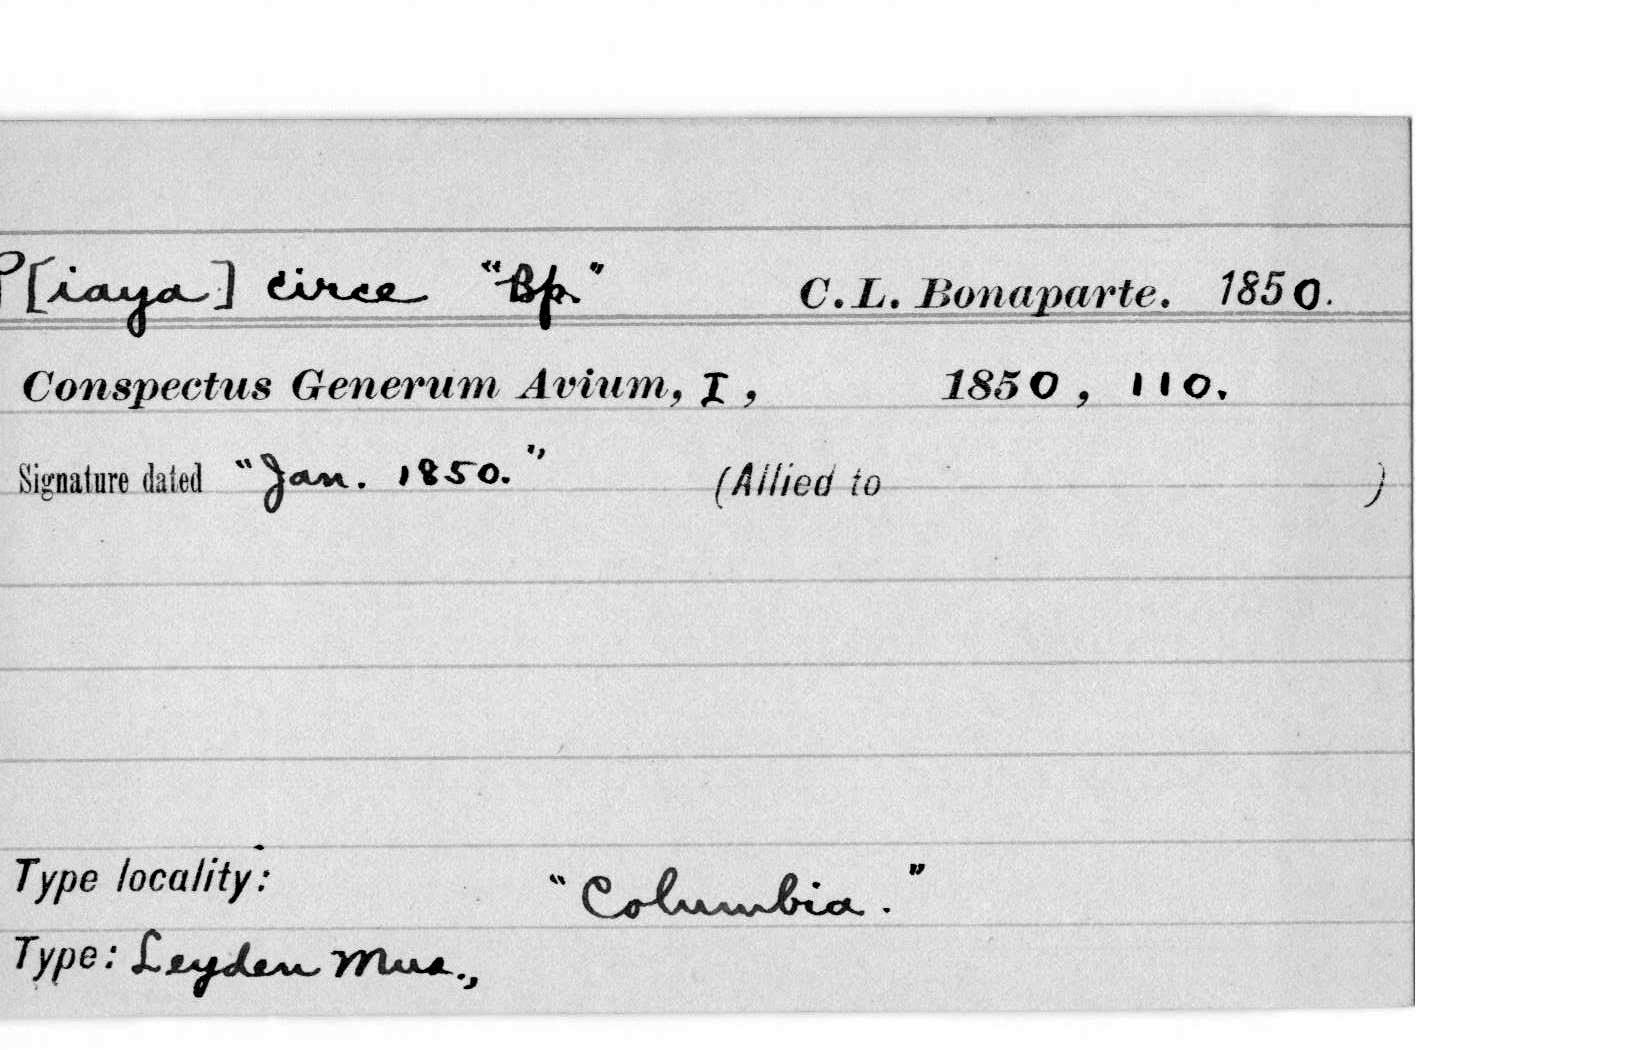 P[iaya] circe "Bp." C.L. Bonaparte. 1850.
Conspectus Generum Avium, I, 1850, 110.
Signature dated "Jan. 1850." (Allied to )
Type locality: "Columbia."
Type: Leyden Mus.,